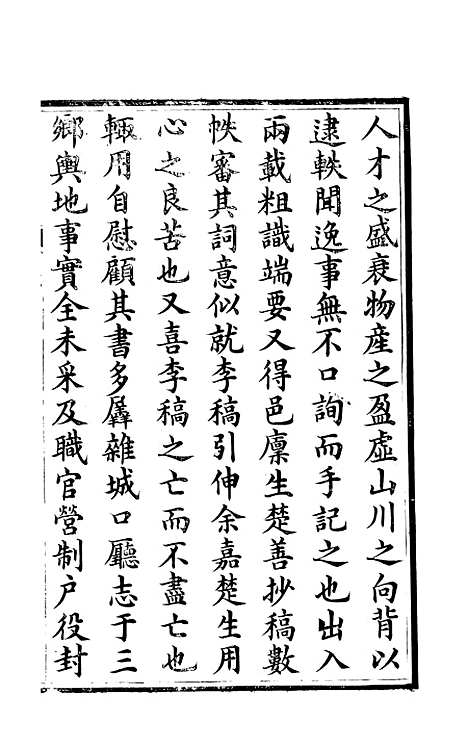 人才之盛衰物産之盈虛山川之向背以
逮軼聞逸事無不口詢而手記之也出入
兩載粗識端要又得邑廩生楚善抄稿數
帙審其詞意似就李稿引伸余嘉楚生用
心之良苦也又喜李稿之亡而不盡亡也
輙用自慰顧其書多羼雜城口廳志于三
鄉輿地事實全未采及職官營制户役封